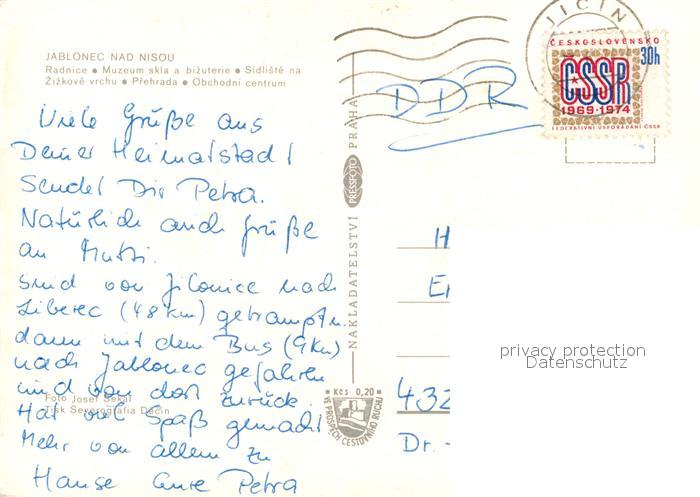 JABLONEC NAD NISOU
Radnice • Muzeum skla a bižuterie • Sídliště na
Žižkově vrchu • Přehrada • Obchodní centrum
Viele Grüße aus
Deiner Heimatstadt
Sendet Dir Petra.
Natürlich auch Grüße
an Mutti.
Sind von Jilonice nach
Liberec (48 km) getrampt u.
dann mit dem Bus (9 km)
nach Jablonec gefahren
und von dort zurück.
Hat viel Spaß gemacht
Mehr von allem zu
Hause Eure Petra
Foto Josef Sekal
Tisk Severografia Děčín
NAKLADATELSTVÍ PRESSFOTO PRAHA
Kčs 0,20
VE PROSPĚCH CESTOVNÍHO RUCHU
JIČÍN
ČESKOSLOVENSKO
30h
ČSSR
1969-1974
FEDERATIVNÍ USPOŘÁDÁNÍ ČSSR
DDR
H
Er
432
Dr.-
privacy protection
Datenschutz